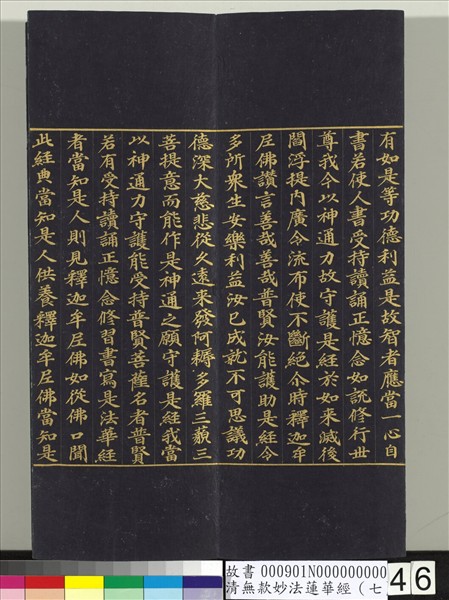 有如是等功德利益是故智者應當一心自
書若使人書受持讀誦正憶念如說修行世
尊我今以神通力故守護是經於如來滅後
閻浮提內廣令流布使不斷絕尒時釋迦牟
尼佛讚言善哉善哉普賢汝能護助是經令
多所衆生安樂利益汝已成就不可思議功
德深大慈悲從久遠来發阿耨多羅三藐三
菩提意而能作是神通之願守護是經我當
以神通力守護能受持普賢菩薩名者普賢
若有受持讀誦正憶念修習書寫是法華經
者當知是人則見釋迦牟尼佛如從佛口聞
此經典當知是人供養釋迦牟尼佛當知是
故書 000901N000000000
清無款妙法蓮華經（七
46